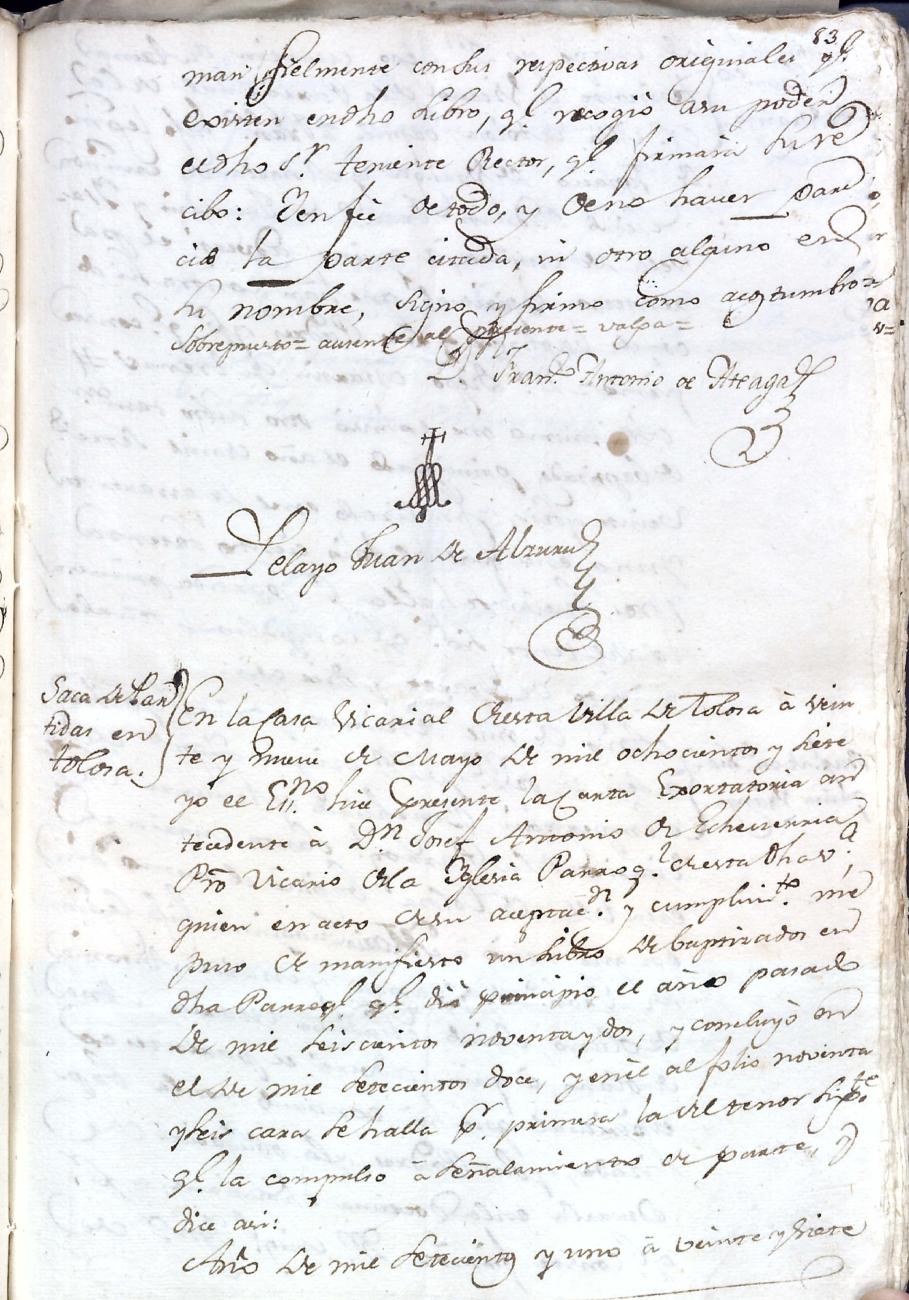 83
man fielmente con sus respectivas originales ql.
existen en dho Libro, ql recogió a su poder
el dho Sr. teniente Rector, ql. firmará su re
cibo: Y en fee de todo, y de no haver pare
cido la parte citada, ni otro alguno en
su nombre, signo y firmo como acostumbro=
Sobrepuesto= ausente al presente= valga=
D. Franco. Antonio de Ateaga
Pelayo Juan de Alzuru
Saca de Par
tidas en
tolosa.
En la Casa Vicarial de esta Villa de Tolosa à vein
te y nueve de Mayo de mil ochocientos y siete
yo el Esno. hice presente la Carta Exortatoria an
tecedente à Dn. Josef Antonio de Echeverria
Pro. Vicario de la Iglesia Parroql. de esta dha va.
quien en acto de su aceptacn. y cumplimto. me
puso de manifiesto un Libro de baptizados en
dha Parroql. ql. dió principio el año pasado
de mil seiscientos noventa y dos, y concluyó en
el de mil setecientos doce, y en él al folio noventa
y seis cara se halla pr. primera la del tenor sigte.
ql. la compulso à señalamiento de parte, y
dice asi:
Año de mil setecientos y uno à veinte y siete